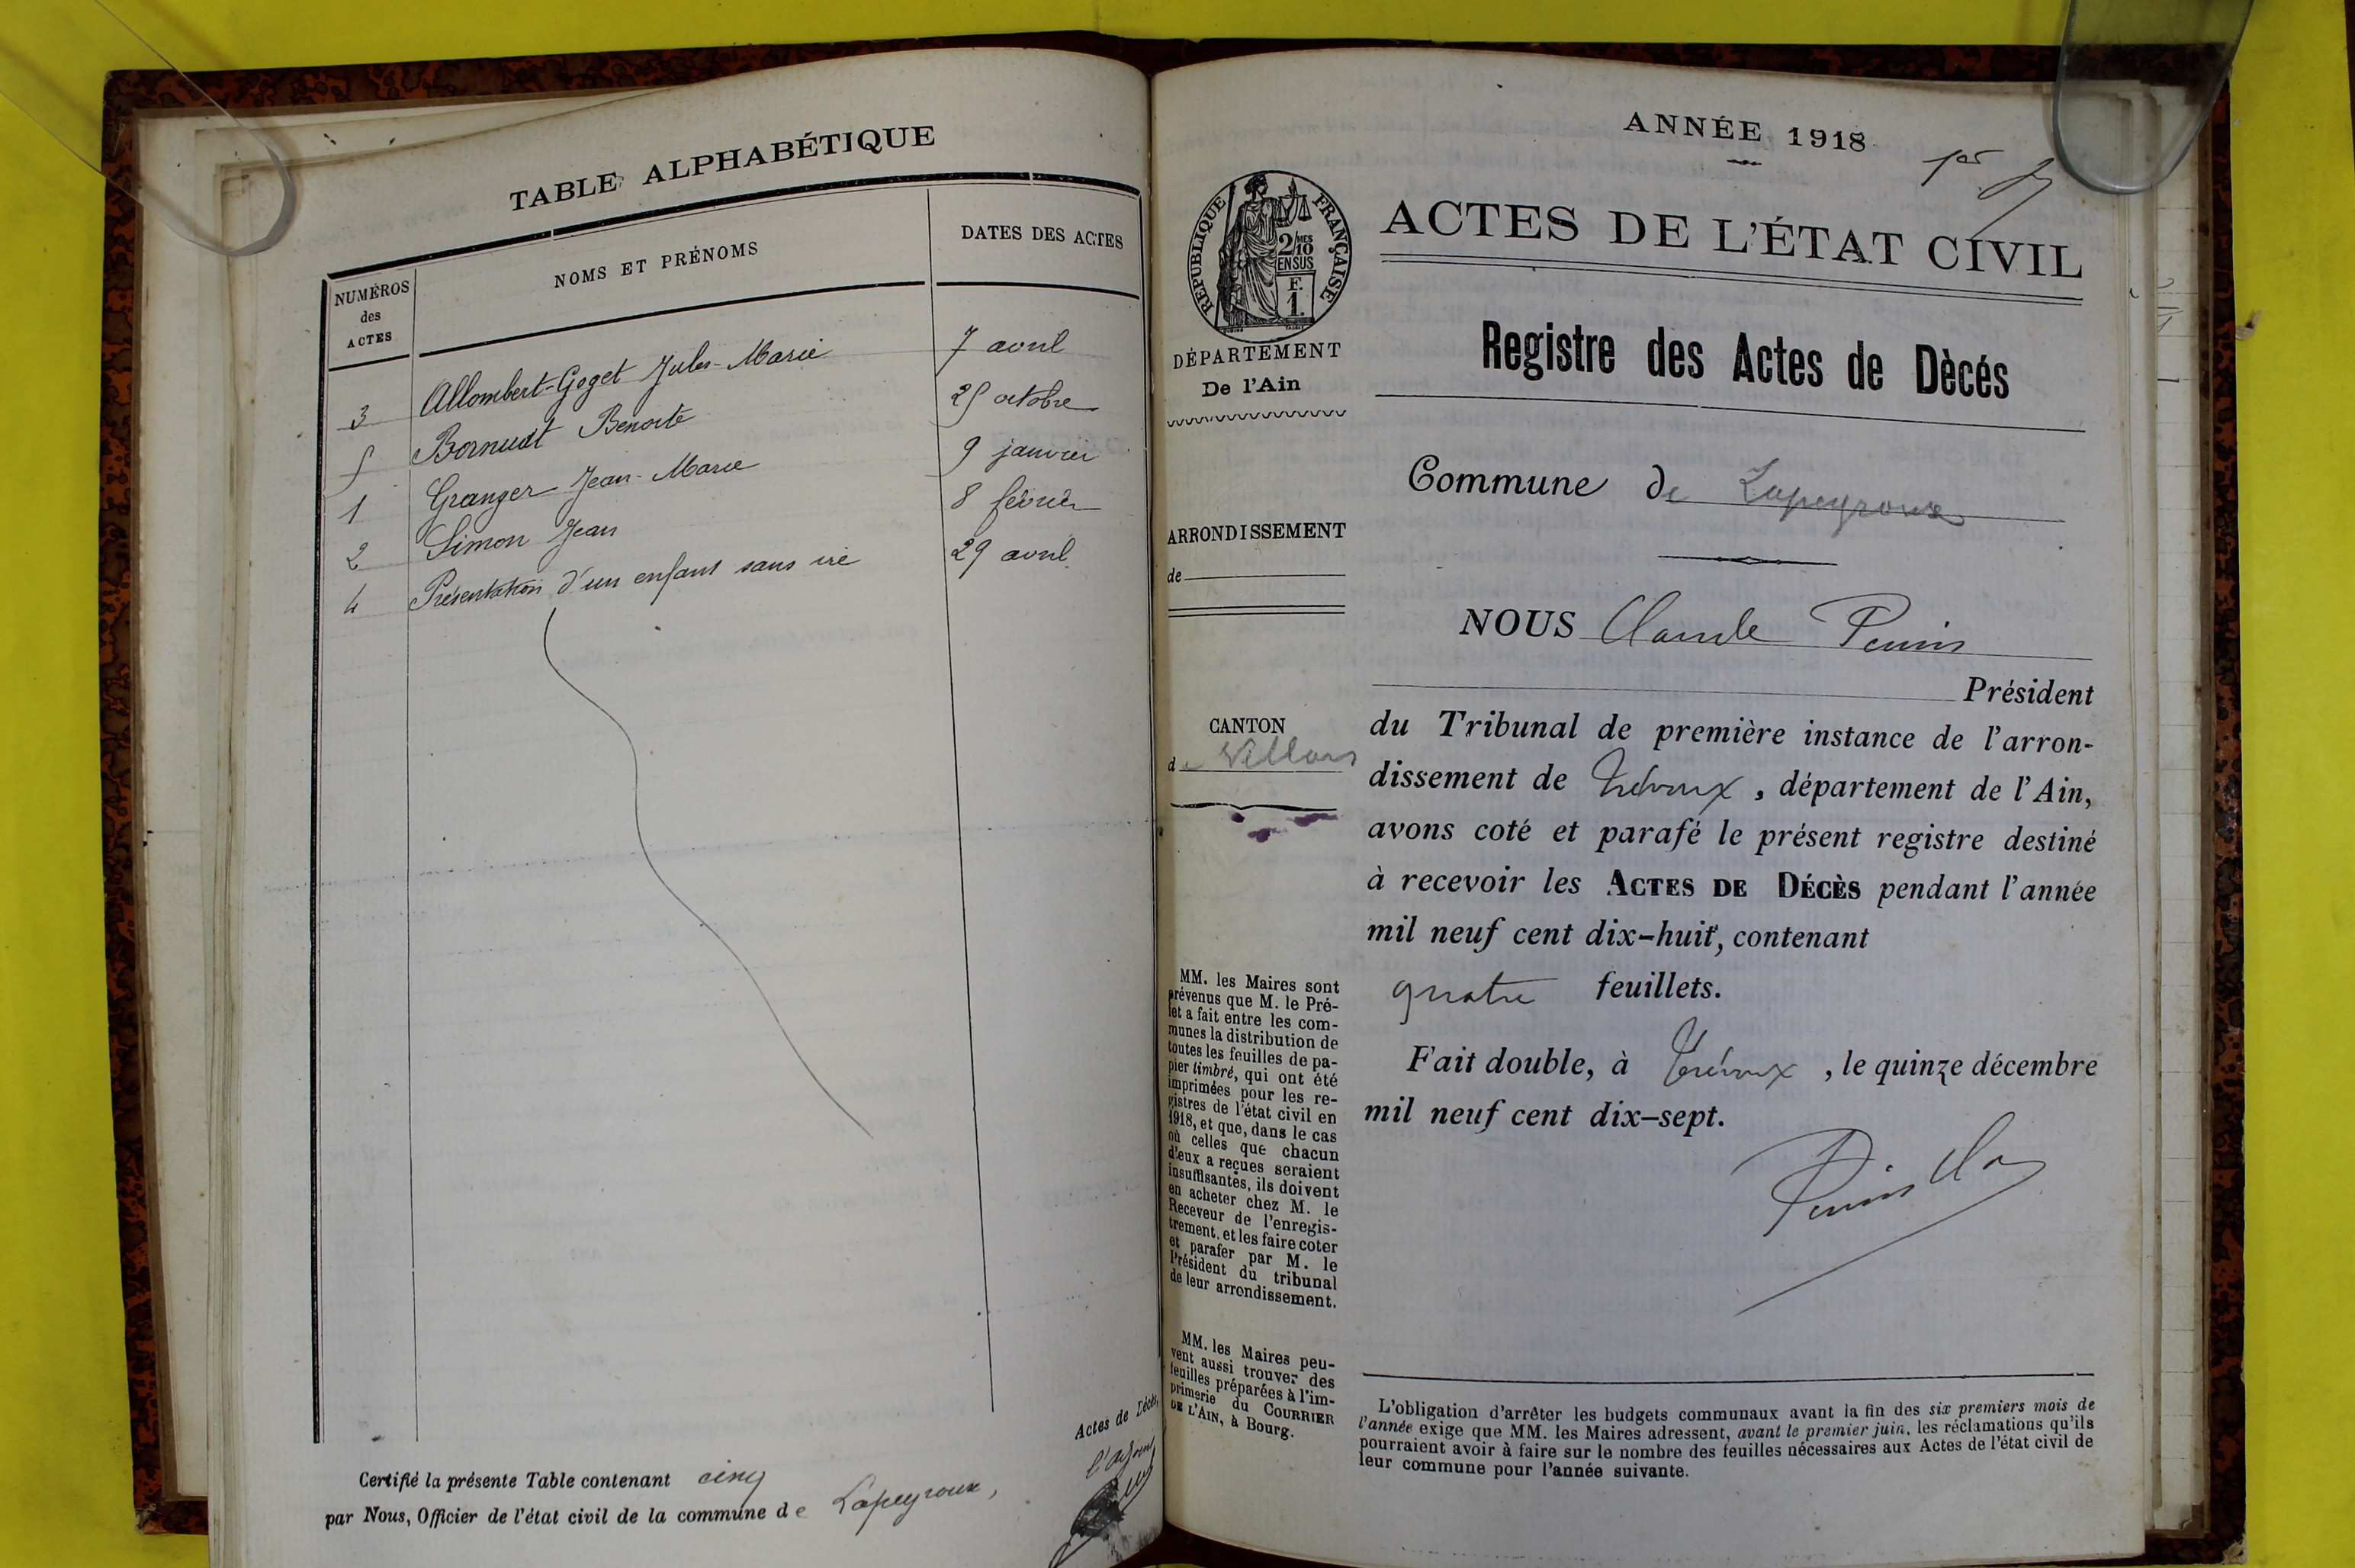 TABLE ALPHABÉTIQUE
NUMÉROS
des
ACTES
NOMS ET PRÉNOMS
DATES DES ACTES
3 Allombert-Goget Jules-Marie 7 avril
5 Bornuat Benoite 25 octobre
1 Granger Jean-Marie 9 janvier
2 Simon Jean 8 février
4 Présentation d'un enfant sans vie 29 avril
Certifié la présente Table contenant cinq
Actes de Décès,
par Nous, Officier de l'état civil de la commune de Lapeyrouse,
l'adjoint
ANNÉE 1918
1er
RÉPUBLIQUE FRANÇAISE
2/MES
10
EN SUS
F.
1.
DÉPARTEMENT
De l'Ain
ARRONDISSEMENT
de
CANTON
de Villars
MM. les Maires sont
prévenus que M. le Pré-
fet a fait entre les com-
munes la distribution de
toutes les feuilles de pa-
pier timbré, qui ont été
imprimées pour les re-
gistres de l'état civil en
1918, et que, dans le cas
où celles que chacun
d'eux a reçues seraient
insuffisantes, ils doivent
en acheter chez M. le
Receveur de l'enregis-
trement, et les faire coter
et parafer par M. le
Président du tribunal
de leur arrondissement.
MM. les Maires peu-
vent aussi trouver des
feuilles préparées à l'im-
primerie du COURRIER
DE L'AIN, à Bourg.
ACTES DE L'ÉTAT CIVIL
Registre des Actes de Dècés
Commune de Lapeyrouse
NOUS Claude Perrin
Président
du Tribunal de première instance de l'arron-
dissement de Trévoux, département de l'Ain,
avons coté et parafé le présent registre destiné
à recevoir les ACTES DE DÉCÈS pendant l'année
mil neuf cent dix-huit, contenant
quatre feuillets.
Fait double, à Trévoux, le quinze décembre
mil neuf cent dix-sept.
L'obligation d'arrêter les budgets communaux avant la fin des six premiers mois de
l'année exige que MM. les Maires adressent, avant le premier juin, les réclamations qu'ils
pourraient avoir à faire sur le nombre des feuilles nécessaires aux Actes de l'état civil de
leur commune pour l'année suivante.